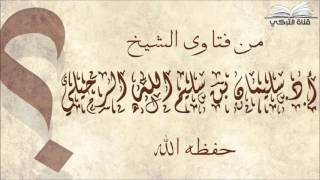 قناة التركي
من فتاوى الشيخ
أ.د. سليمان بن سليم الله الرحيلي
حفظه الله
؟